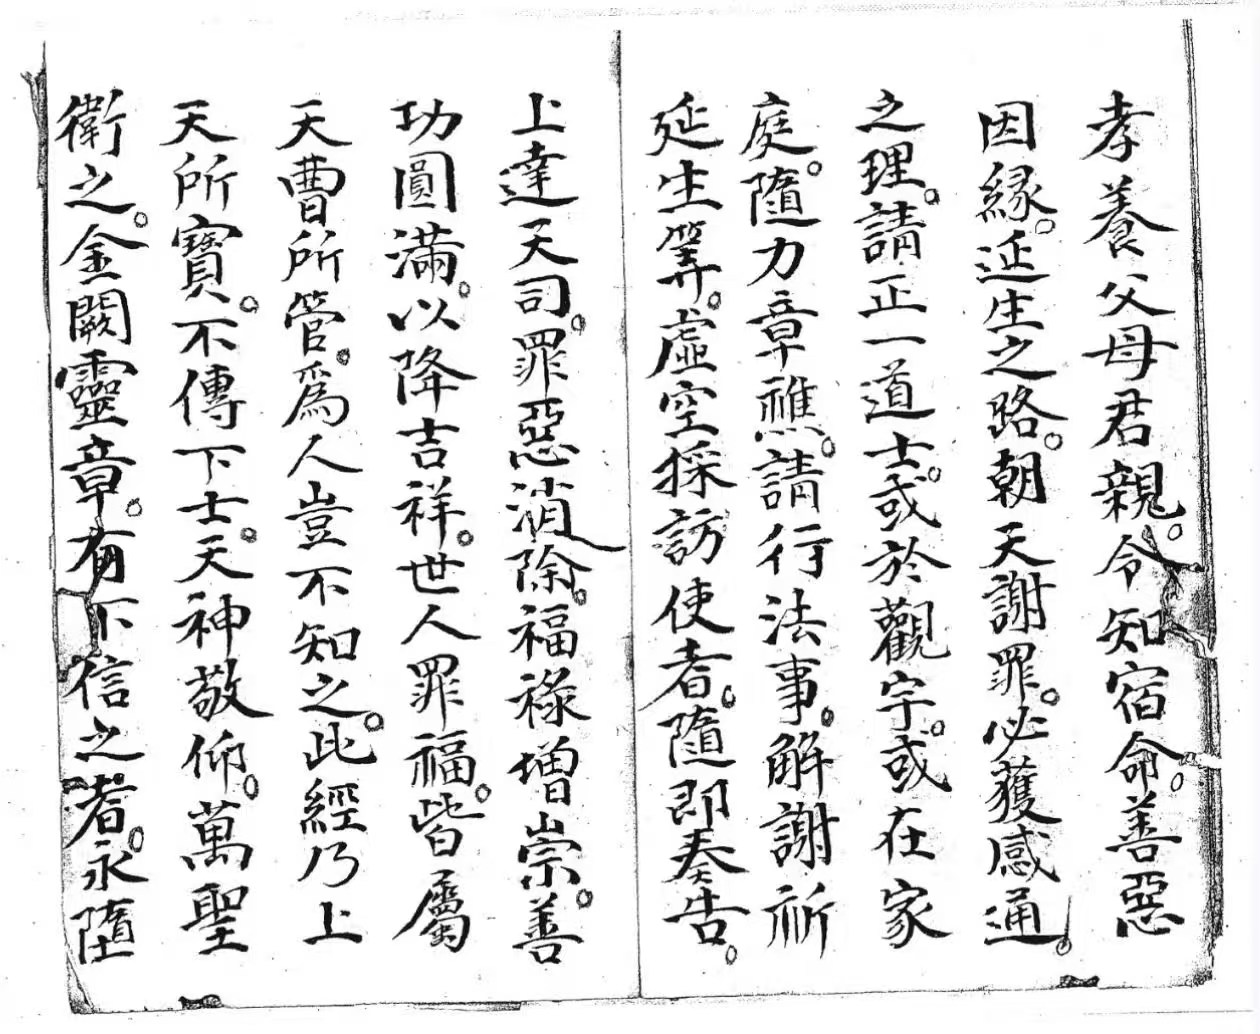 孝養父母君親。令知宿命。善惡
因緣。延生之路。朝天謝罪。必獲感通。
之理。請正一道士。或於觀宇。或在家
庭。隨力章醮。請行法事。解謝祈
延生筭。虛空採訪使者。隨即奏告。
上達天司。罪惡消除。福祿增崇。善
功圓滿。以降吉祥。世人罪福。皆屬
天曹所管。為人豈不知之。此經乃上
天所寶。不傳下士。天神敬仰。萬聖
衛之。金闕靈章。有不信之者。永墮